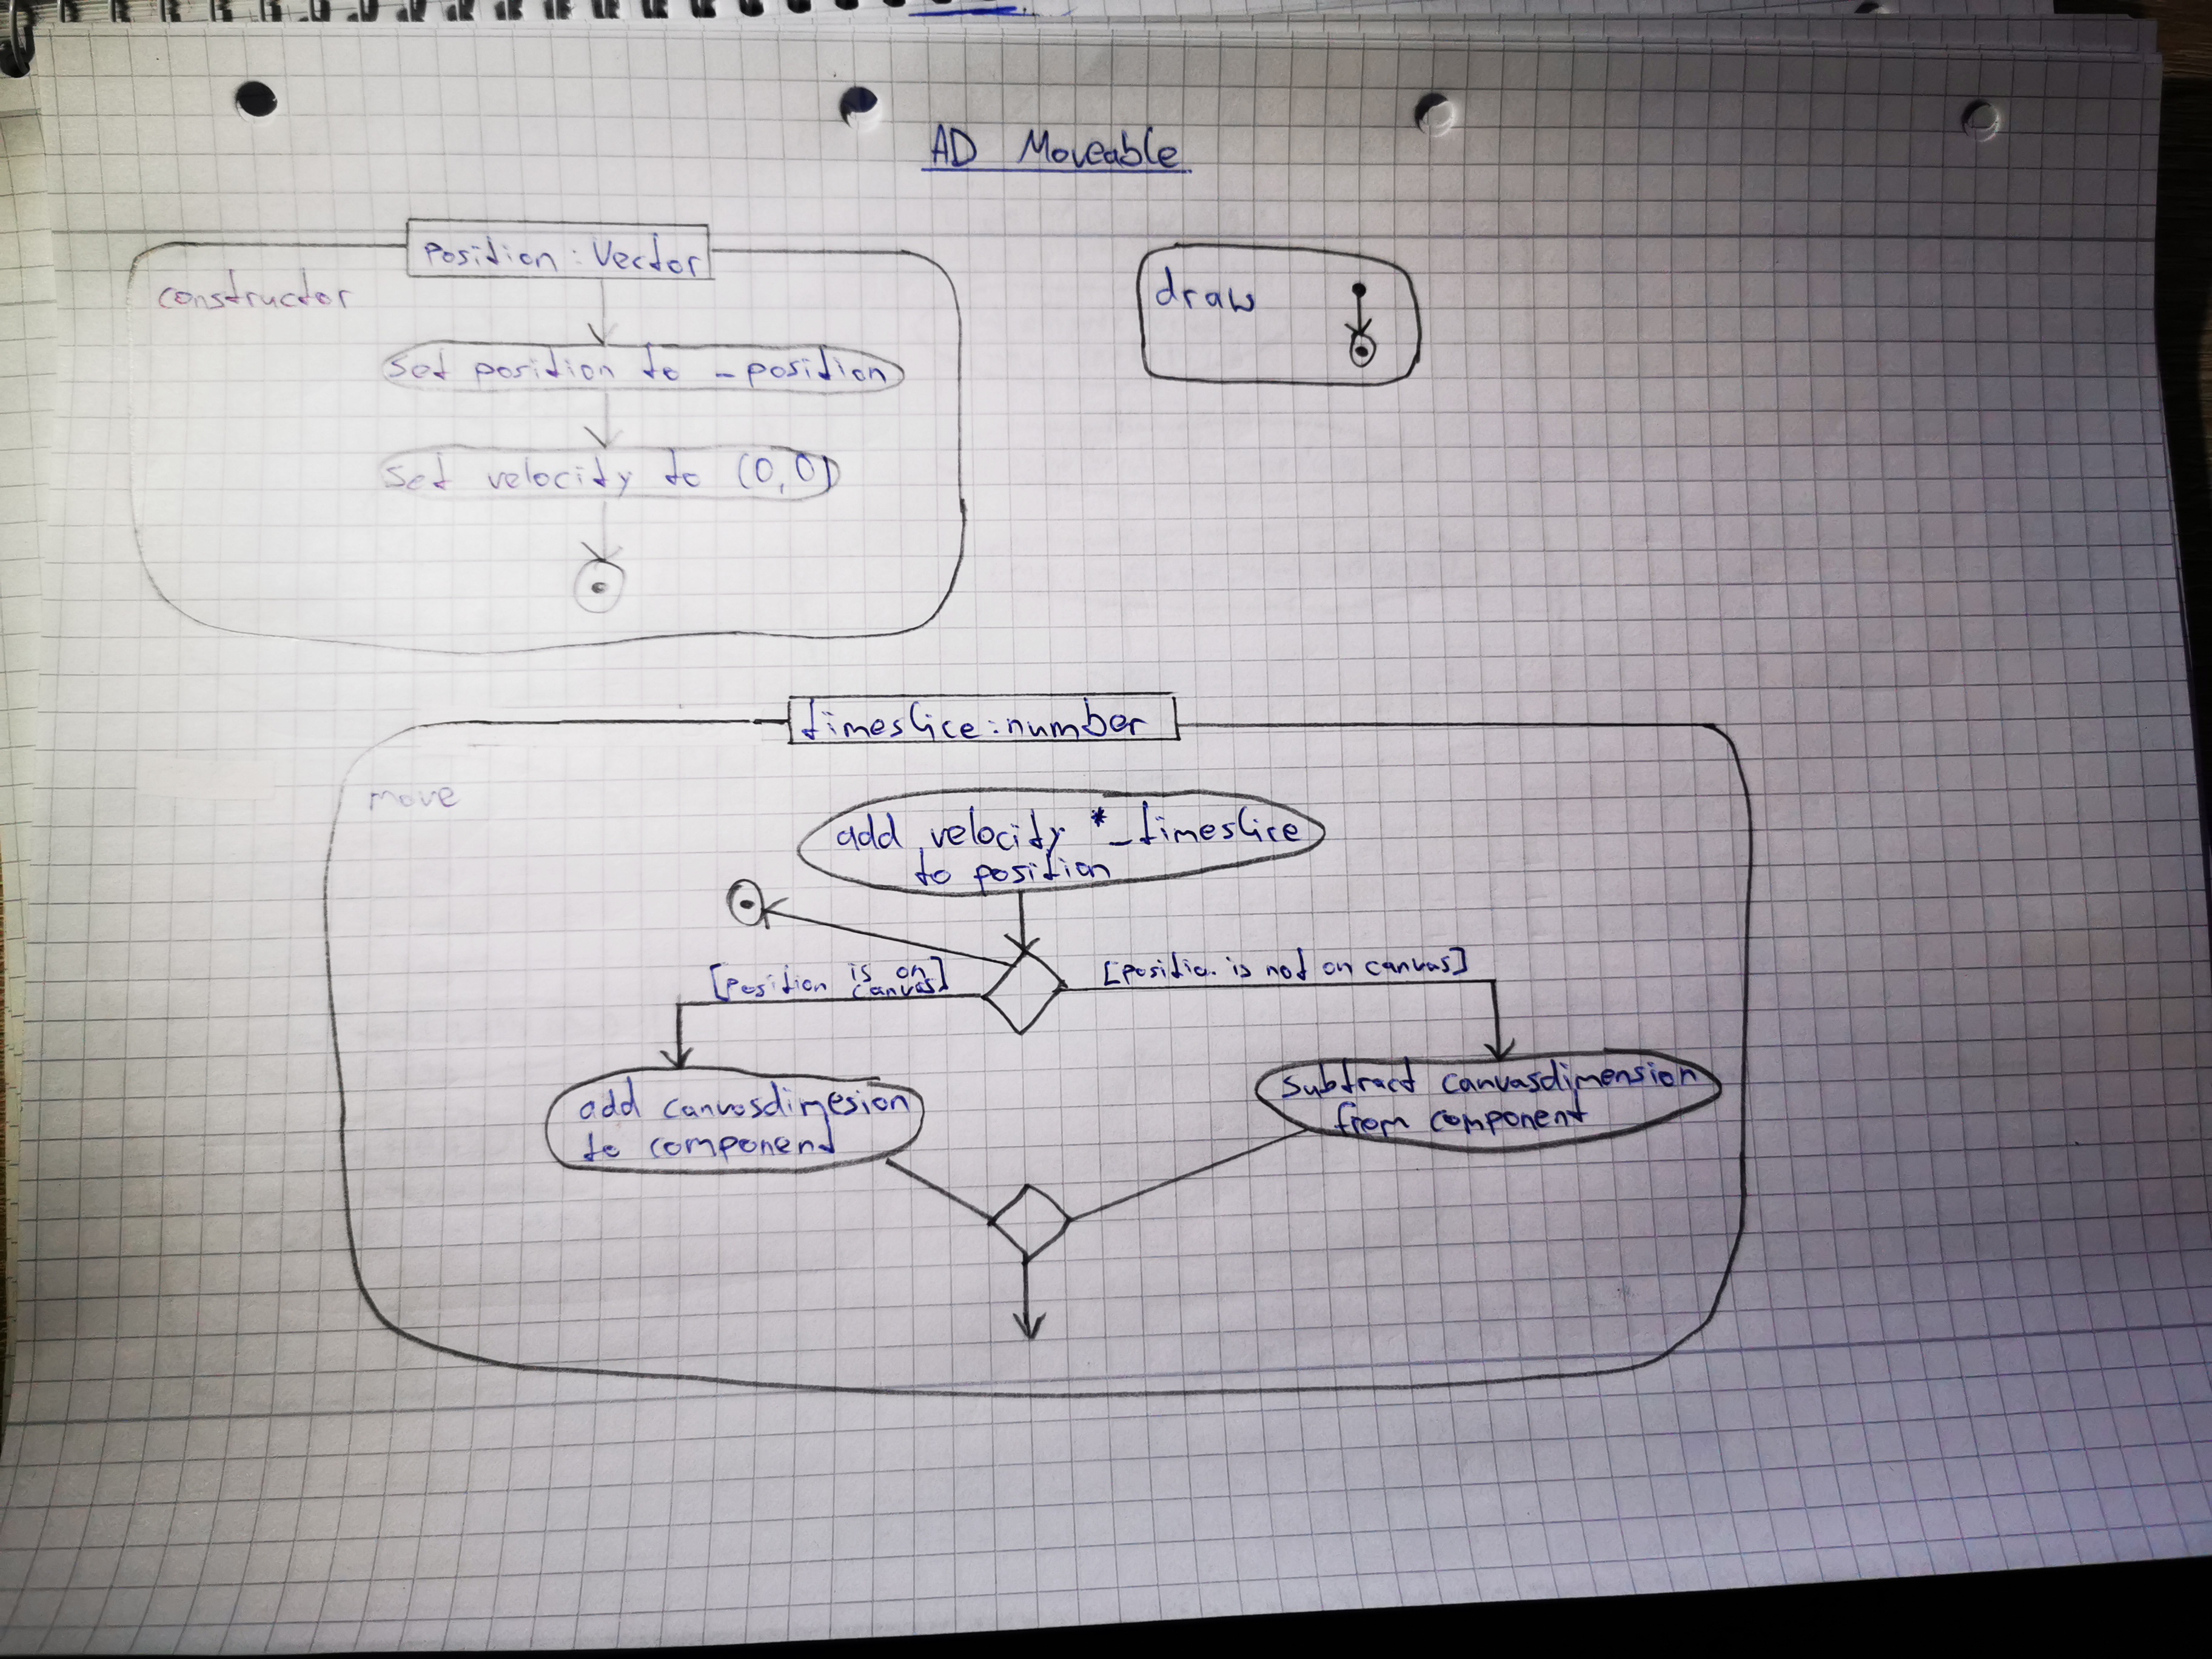 AD Moveable
Position : Vector
constructor
draw
set position to _position
set velocity to (0,0)
timeslice : number
move
add velocity * _timeslice
to position
[position is on
canvas]
[positio. is not on canvas]
add canvasdimesion
to component
subtract canvasdimension
from component